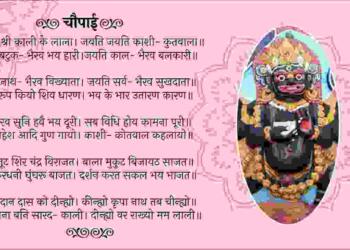 चौपाई
श्री काली कै लाला। जयति जयति काशी- कुतवाला॥
बटुक- भैरव भय हारी।जयति काल- भैरव बलकारी॥
नाथ- भैरव विख्याता। जयति सर्व- भैरव सुखदाता॥
रूप कियो शिव धारण। भव के भार उतारण कारण॥
रव सुनि ह्वै भय दूरी। सब विधि होय कामना पूरी॥
हेश आदि गुण गायो। काशी- कोतवाल कहलायो॥
जूट शिर चंद्र विराजत। बाला मुकुट बिजायठ साजत॥
रधनी घूंघरू बाजत। दर्शन करत सकल भय भाजत॥
दान दास को दीन्ह्यो। कीन्ह्यो कृपा नाथ तब चीन्ह्यो॥
ना बनि सारद- काली। दीन्ह्यो वर राख्यो मम लाली॥